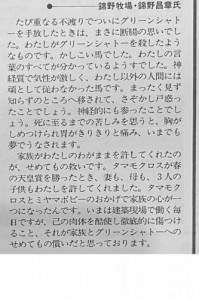 錦野牧場・錦野昌章氏
たび重なる不渡りでついにグリーンシャト
ーを手放したときは、まさに断腸の思いでし
た。わたしがグリーンシャトーを殺したよう
なものです。かしこい馬でした。わたしの言葉
のすべてが分かっているようすでした。神
経質で気性が激しく、わたし以外の人間には
頑として従わなかった馬です。まったく見ず
知らずのところへ移されて、さぞかし戸惑っ
たことでしょう。神経的にも参ったことでし
ょう。死に至るまでの苦しみを思うと、胸が
しめつけられ胃がきりきりと痛み、いまでも
夢でうなされます。
家族がわたしのわがままを許してくれたの
が、せめてもの救いです。タマモクロスが春
の天皇賞を勝ったとき、妻も、母も、3人の
子供もわたしを許してくれました。タマモク
ロスとミヤマポピーのおかげで家族の心が一
つになったんです。いまは建築現場で働く毎
日ですが、己の肉体を酷使し徹底的に傷つけ
ること、それが家族とグリーンシャトーへの
せめてもの償いだと思っております。